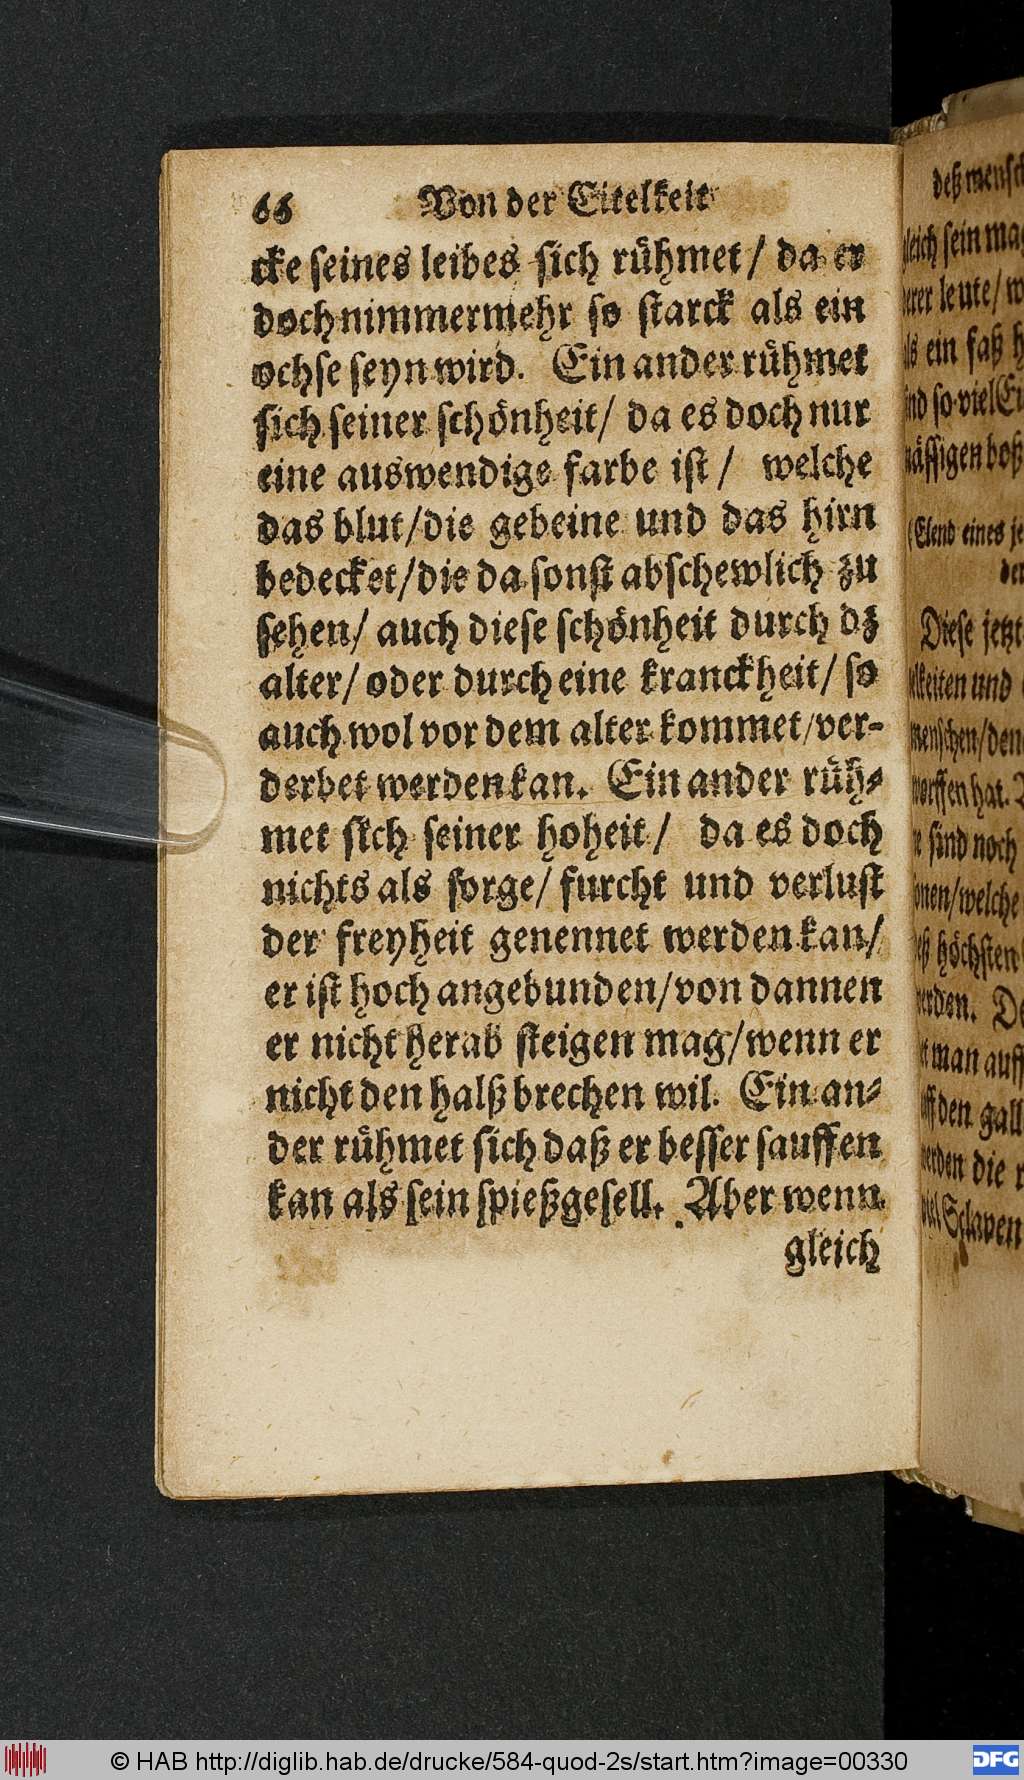 66 Von der Eitelkeit
cke seines leibes sich rühmet/ da er
doch nimmermehr so starck als ein
ochse seyn wird. Ein ander rühmet
sich seiner schönheit/ da es doch nur
eine auswendige farbe ist/ welche
das blut/die gebeine und das hirn
bedecket/die da sonst abschewlich zu
sehen/ auch diese schönheit durch dz
alter/ oder durch eine kranckheit/ so
auch wol vor dem alter kommet/ver-
derbet werden kan. Ein ander rüh-
met sich seiner hoheit/ da es doch
nichts als sorge/ furcht und verlust
der freyheit genennet werden kan/
er ist hoch angebunden/von dannen
er nicht herab steigen mag/wenn er
nicht den halß brechen wil. Ein an-
der rühmet sich daß er besser sauffen
kan als sein spießgesell. Aber wenn
gleich
deß
sein
leute/
ein faß
so viel
(Elend eines
Diese jetzt
und
hat.
sind noch
höchsten
man
den
die
Sclaven
© HAB http://diglib.hab.de/drucke/584-quod-2s/start.htm?image=00330
DFG